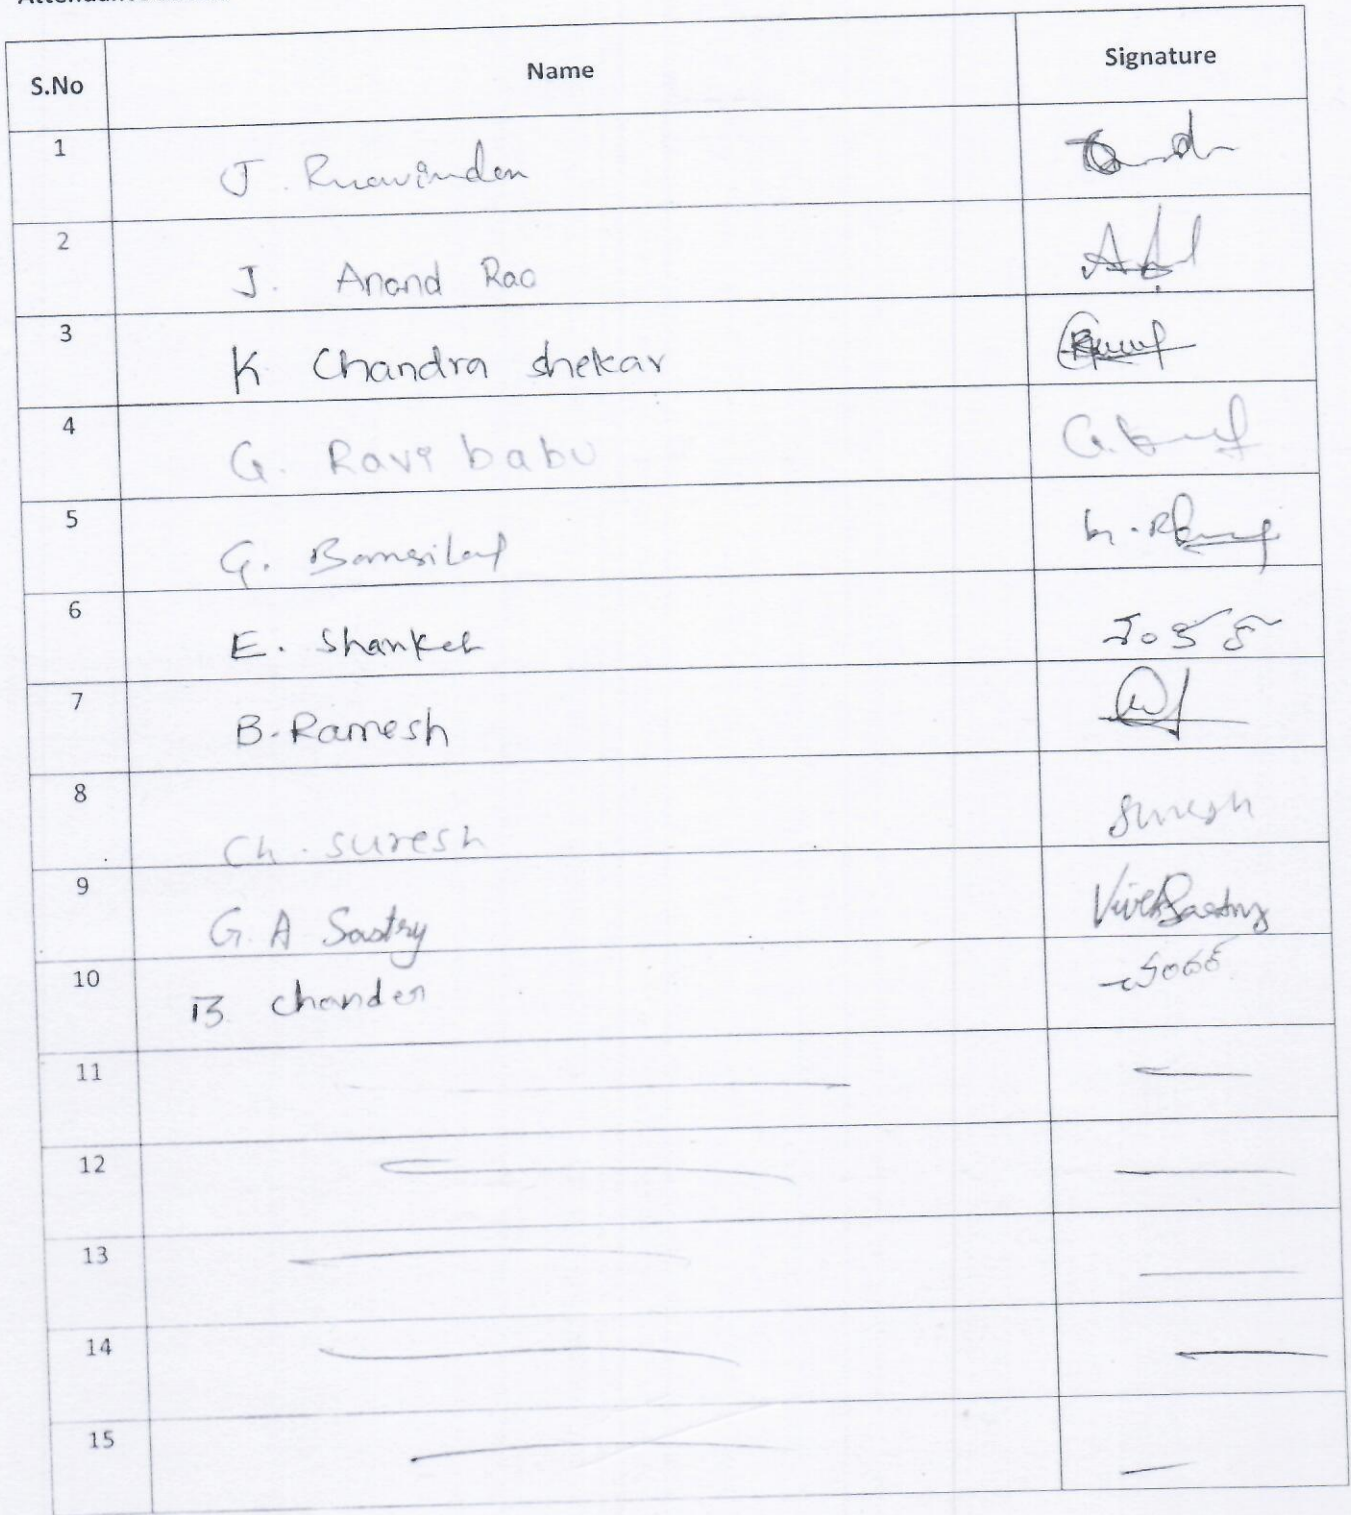 S.No Name Signature
1
2 J. Anand Rao
3 K Chandra shekar
4 G. Ravi babu
5 G. Bansilal
6 E. Shanker శంకర్
7 B. Ramesh
8 Ch. Suresh Suresh
9 G. A Sastry
10 B. Chander చందర్
11
12
13
14
15